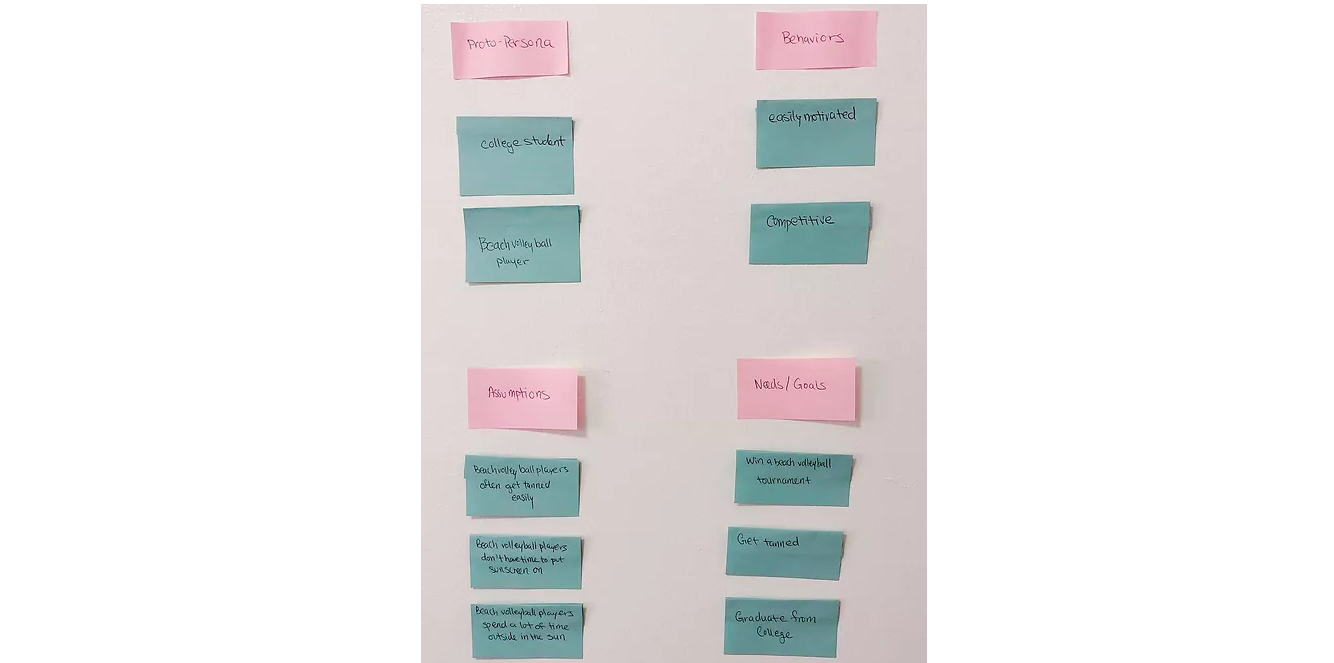 Proto-Persona
college student
Beach volleyball
player
Behaviors
easily motivated
Competitive
Assumptions
Beach volley ball players
often get tanned
easily
Beach volleyball players
don't have time to put
sunscreen on
Beach volleyball players
spend a lot of time
outside in the sun
Needs/Goals
Win a beach volleyball
tournament
Get tanned
Graduate from
College